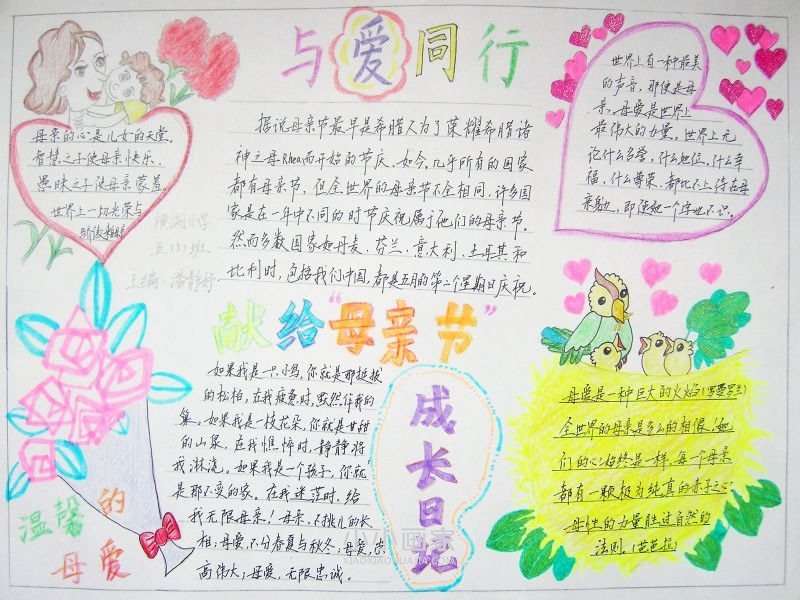 与爱同行
母亲的心是儿女的天堂。
智慧之子使母亲快乐,
愚昧之子使母亲蒙羞。
世界上一切光荣与
横湖小学
五(5)班
主编:潘静好
据说母亲节最早是希腊人为了荣耀希腊诸
神之母Rhea而开始的节庆。如今,几乎所有的国家
都有母亲节,但全世界的母亲节不全相同,许多国
家是在一年中不同的时节庆祝属于他们的母亲节。
然而多数国家如丹麦、芬兰、意大利、土耳其和
比利时,包括我们中国,都是五月的第二个星期日庆祝。
世界上有一种最美
的声音,那便是母
亲。母爱是世界上
最伟大的力量。世界上无
论什么名誉,什么地位,什么幸
福,什么尊荣,都比不上待在母
亲身边,即使她一个字也不识。
献给“母亲节”
如果我是一只小鸟,你就是那挺拔
的松柏,在我疲惫时,默然作我的
巢。如果我是一枝花朵,你就是甘甜
的山泉,在我憔悴时,静静将
我淋浇。如果我是一个孩子,你就
是那不变的家。在我迷茫时,给
我无限母亲!母亲,不挑儿的长
相,母爱,不分春夏与秋冬,母爱,崇
高伟大;母爱,无限忠诚。
成长日记
母爱是一种巨大的火焰(罗曼罗兰)
全世界的母亲是多么的相像!她
们的心始终是一样,每一个母亲
都有一颗极为纯真的赤子之心
母性的力量胜过自然的
法则。(芭芭拉)
温馨的
母爱